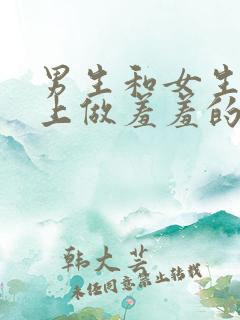 男生和女生
上做羞羞的
韩大芸
未经同意禁止转载